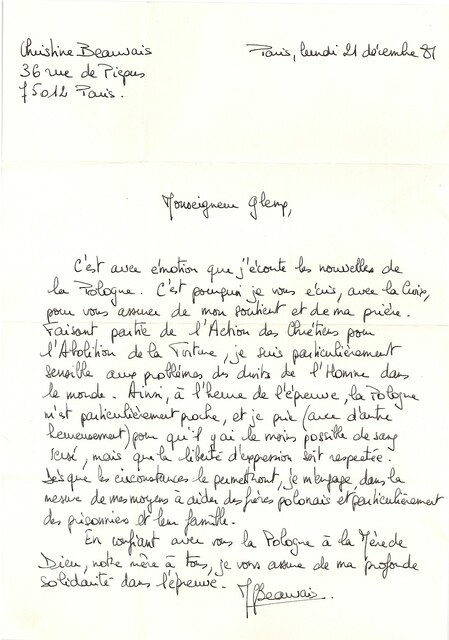 Christine Beauvais
Paris, lundi 21 décembre 81
36 rue de Picpus
75012 Paris.
Monseigneur Glemp,
C'est avec émotion que j'écoute les nouvelles de
la Pologne. C'est pourquoi je vous écris, avec la Croix,
pour vous assurer de mon soutient et de ma prière.
Faisant partie de l'Action des Chrétiens pour
l'Abolition de la Torture, je suis particulièrement
sensible aux problèmes des droits de l'Homme dans
le monde. Ainsi, à l'heure de l'épreuve, la Pologne
m'est particulièrement proche, et je prie (avec d'autre
heureusement) pour qu'il y ai le moins possible de sang
versé, mais que la liberté d'expression soit respectée.
Dès que les circonstances le permettront, je m'engage, dans la
mesure de mes moyens à aider des frères polonais et particulièrement
des prisonniers et leur famille.
En confiant avec vous la Pologne à la Mère de
Dieu, notre mère à tous, je vous assure de ma profonde
solidarité dans l'épreuve.
Beauvais.